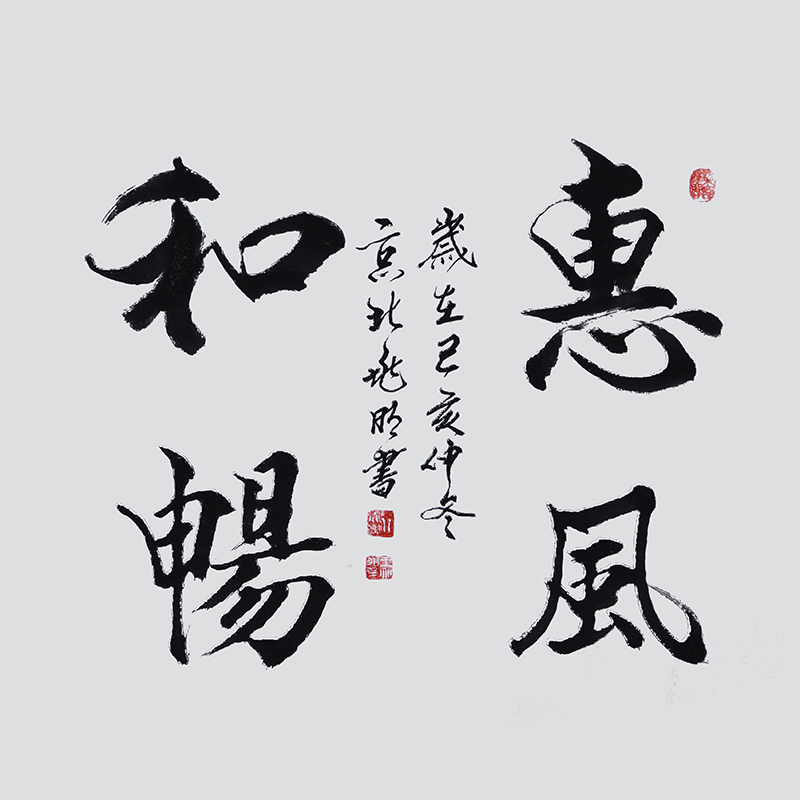 惠風
和暢
歲在己亥仲冬
京北兆明書